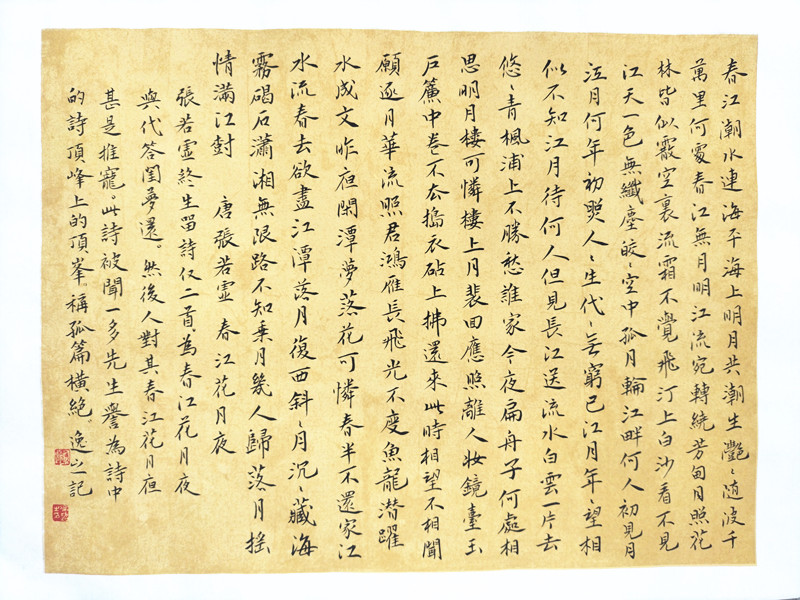 春江潮水連海平海上明月共潮生灩〻随波千
萬里何處春江無月明江流宛轉繞芳甸月照花
林皆似霰空裏流霜不覺飛汀上白沙看不見
江天一色無纖塵皎〻空中孤月輪江畔何人初見月
江月何年初照人〻生代〻無窮已江月年〻望相
似不知江月待何人但見長江送流水白雲一片去
悠〻青楓浦上不勝愁誰家今夜扁舟子何處相
思明月樓可憐樓上月裴回應照離人妝鏡臺玉
戶簾中卷不去搗衣砧上拂還來此時相望不相聞
願逐月華流照君鴻雁長飛光不度魚龍潛躍
水成文昨夜閑潭夢落花可憐春半不還家江
水流春去欲盡江潭落月復西斜〻月沉藏海
霧碣石瀟湘無限路不知乘月幾人歸落月搖
情滿江對 唐張若虛 春江花月夜
張若虛終生留詩仅二首為春江花月夜
與代答閨夢還。然後人對其春江花月夜
甚是推寵。此詩被聞一多先生譽為詩中
的詩頂峰上的頂峯。稱孤篇橫絕。逸之記